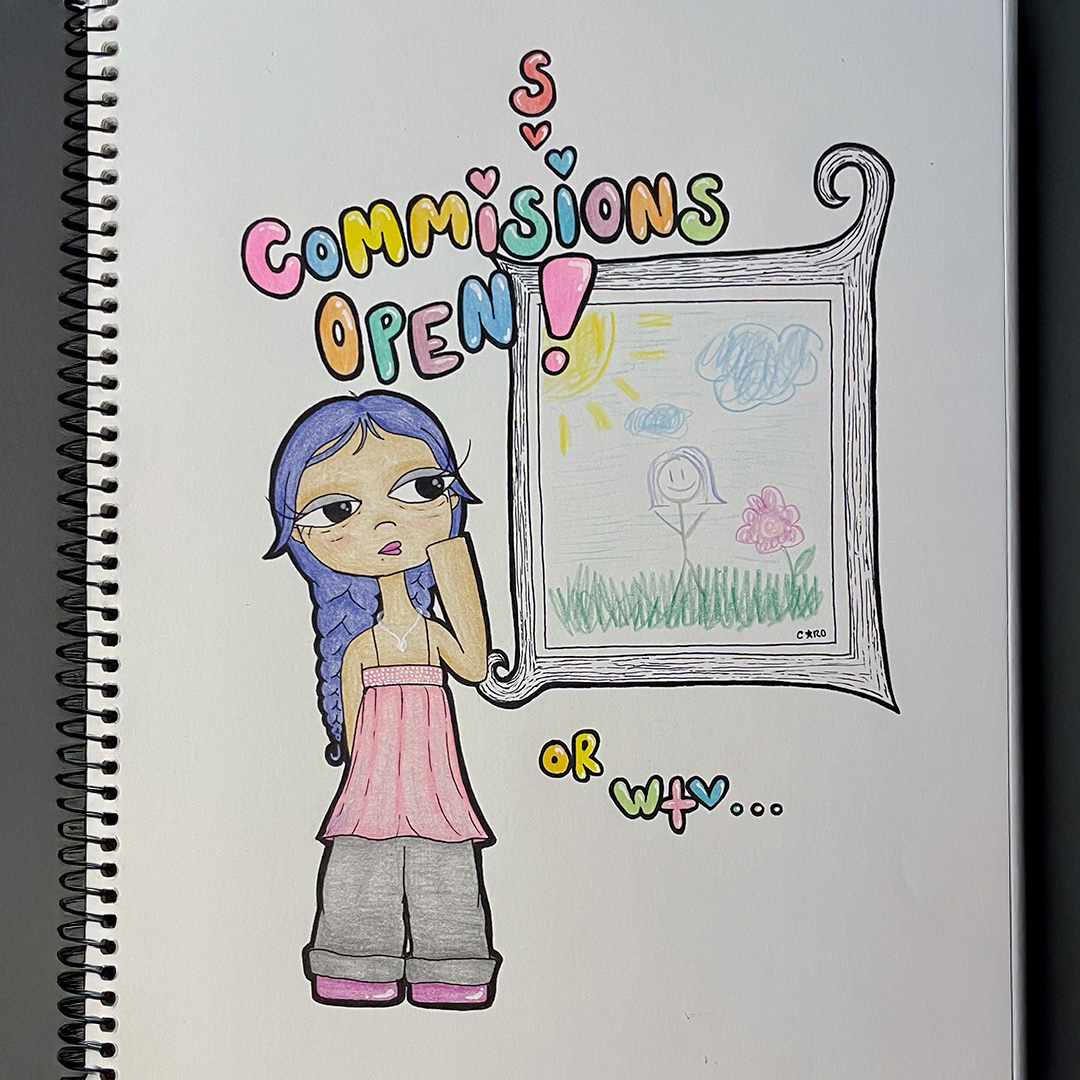 S
COMMiSiONS
OPEN!
C★RO
OR
W+♥...